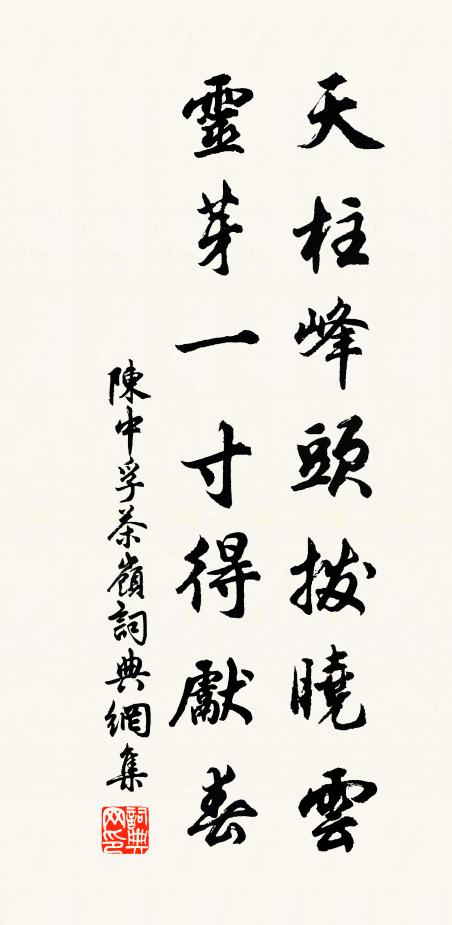 天柱峰頭拨曉雲
靈芽一寸得獻春
陳中孚茶嶺詞典網集
詞典网印